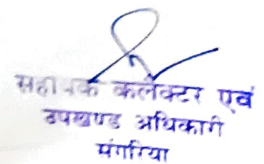 सहायक कलैक्टर एवं
उपखण्ड अधिकारी
संगरिया